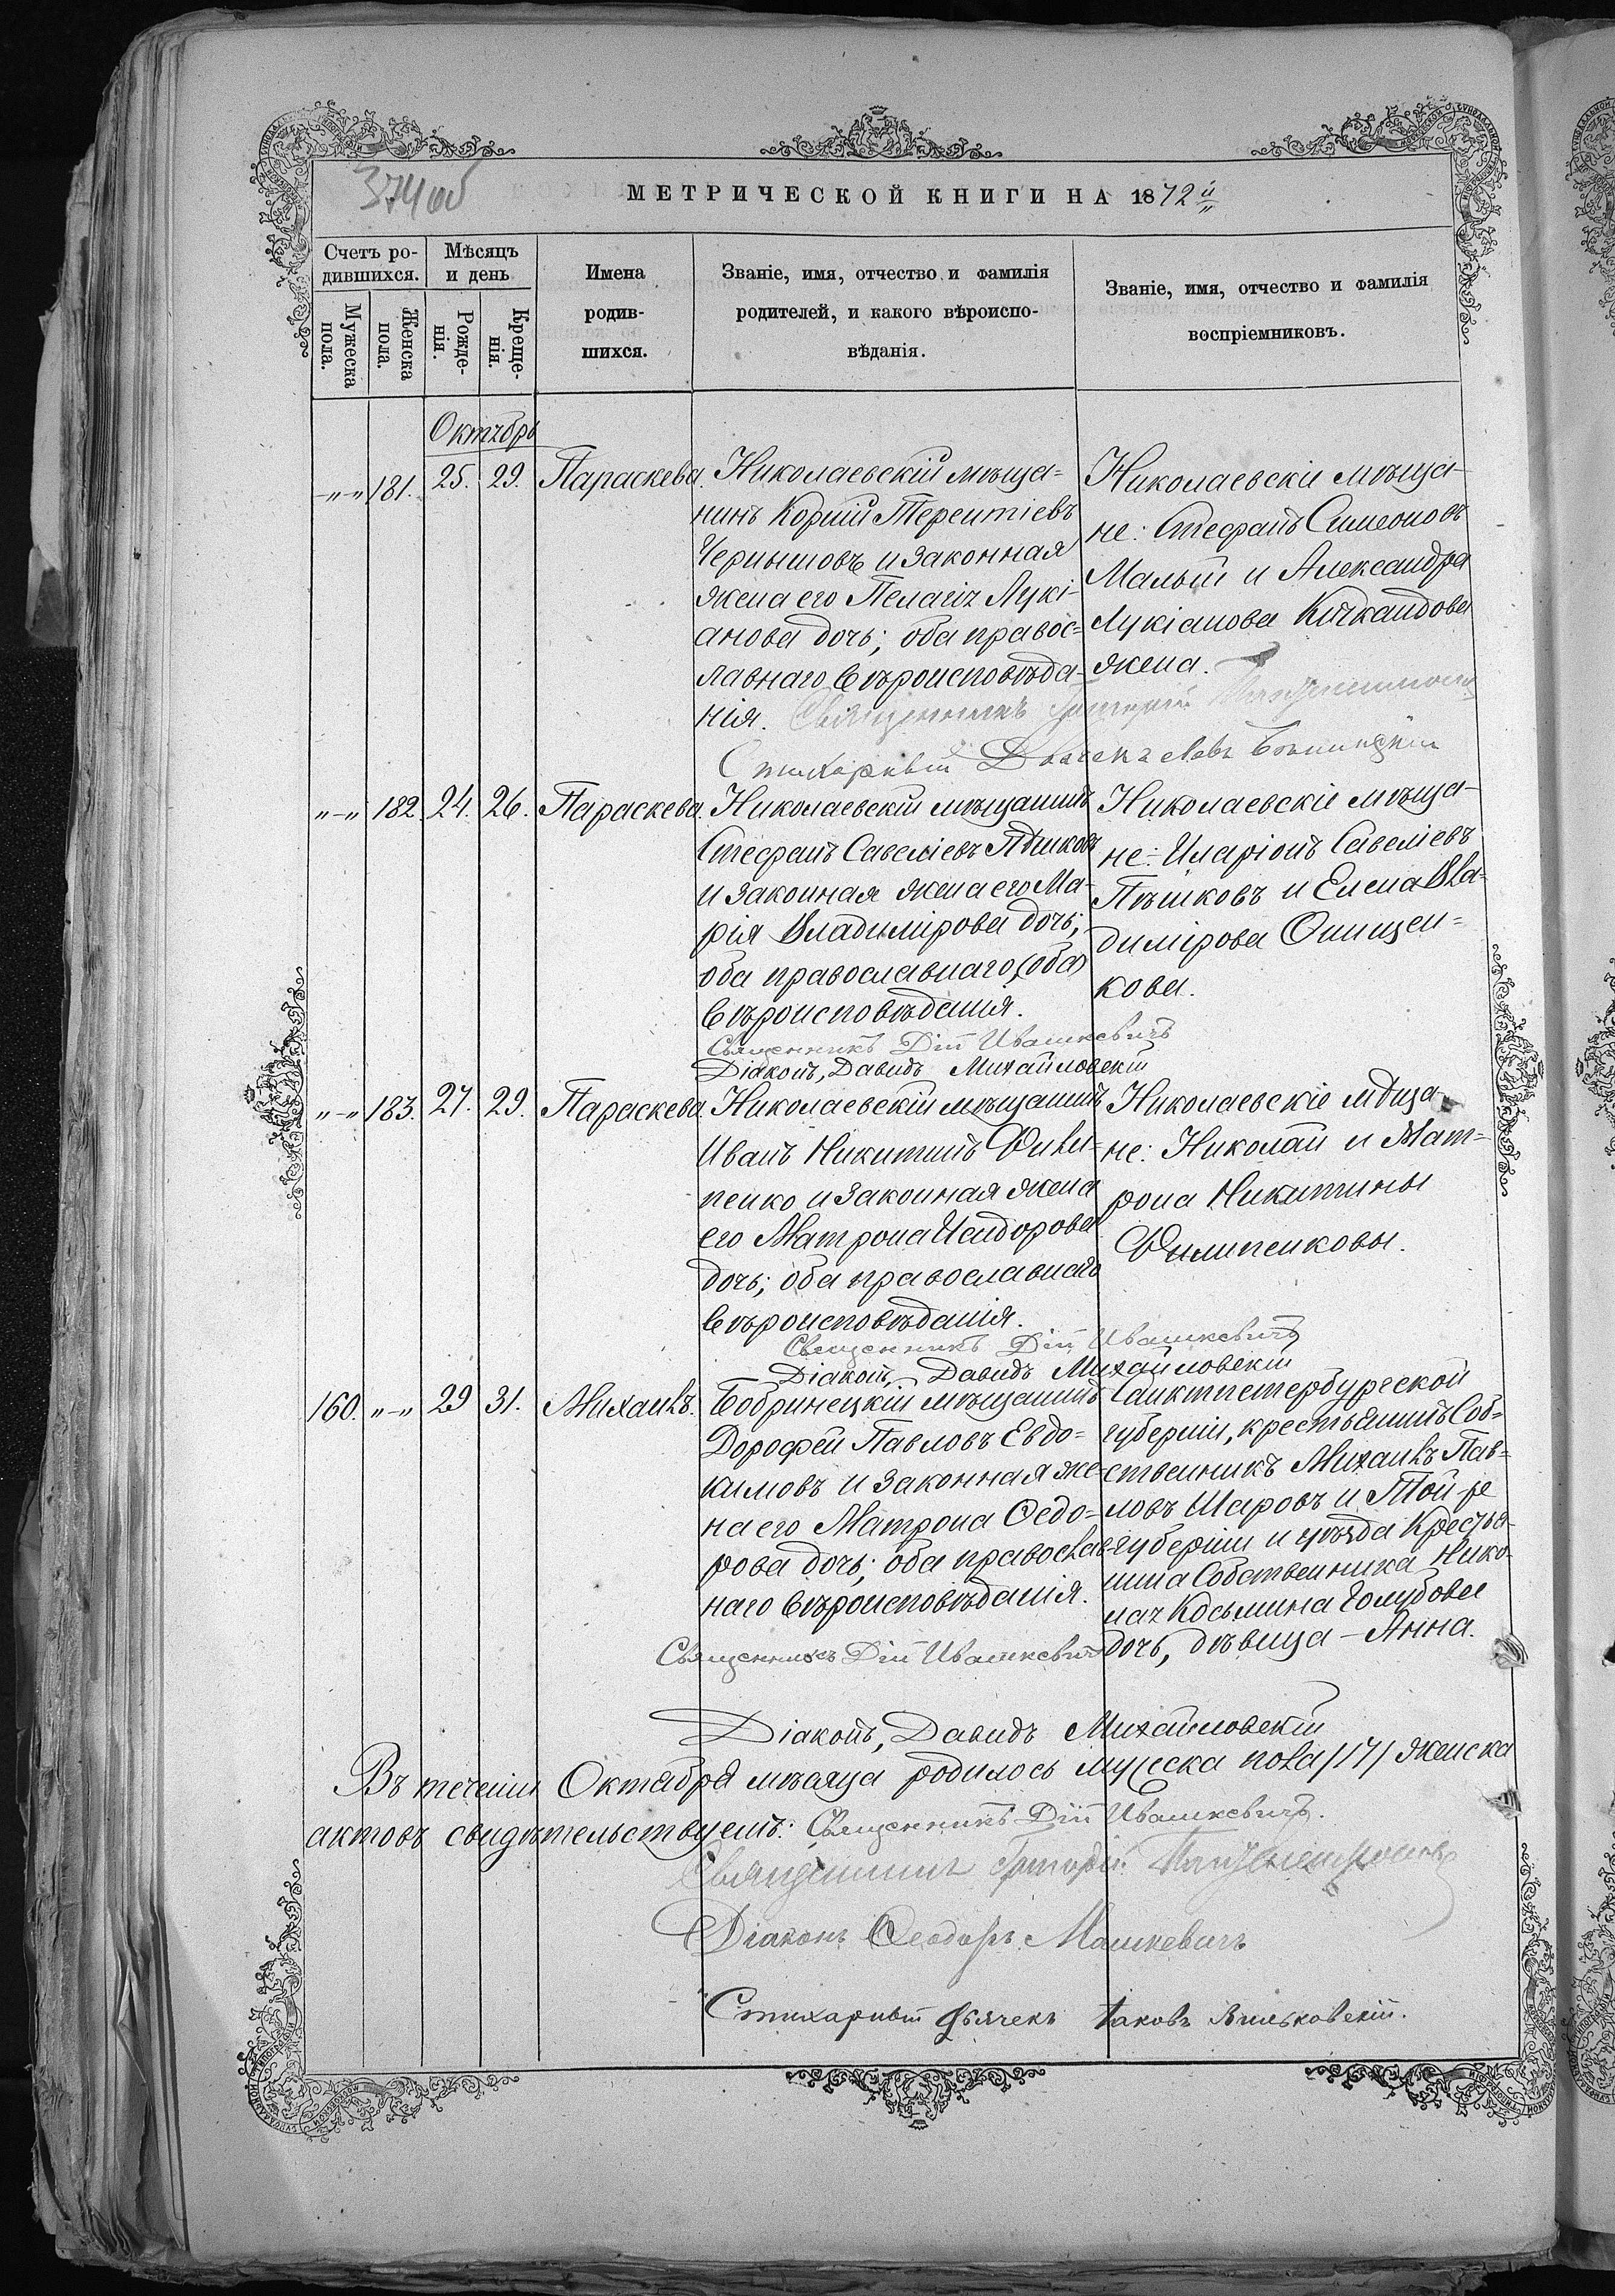 374 об
МЕТРИЧЕСКОЙ КНИГИ НА 1872й
Счетъ ро-
дившихся.
Мѣсяцъ
и день
Имена
родив-
шихся.
Званіе, имя, отчество и фамилія
родителей, и какого вѣроиспо-
вѣданія.
Званіе, имя, отчество и фамилія
воспріемниковъ.
Мужеска
пола.
Женска
пола.
Рожде-
нія.
Креще-
нія.
Октябрь
-„-„ 181. 25. 29. Параскева.
Николаевскій мѣща=
нинъ Корній Терентіевъ
Чернышовъ и законная
жена его Пелагія Лукі-
анова дочь; оба правос=
лавнаго вѣроисповѣда-
нія. Священникъ Григорій
Стихарный Дьячекъ
Николаевскіе мѣща-
не: Стефанъ Симеоновъ
Малый и Александра
Лукіанова
жена.
„-„ 182. 24. 26. Параскева.
Николаевскій мѣщанинъ
Стефанъ Савеліевъ Пѣшковъ
и законная жена его Ма-
рія Владимірова дочь;
оба православнаго (оба)
вѣроисповѣданія.
Священникъ Дій Ивашкевичъ
Діаконъ, Давидъ Михайловскій
Николаевскіе мѣща-
не: Иларіонъ Савеліевъ
Пѣшковъ и Елена Вла-
димірова Онищен=
кова.
„-„ 183. 27. 29. Параскева.
Николаевскій мѣщанинъ
Иванъ Никитинъ Фили-
пенко и законная жена
его Матрона Исидорова
дочь; оба православнаго
вѣроисповѣданія.
Священникъ Дій Ивашкевичъ
Діаконъ, Давидъ Михайловскій
Николаевскіе мѣща-
не: Николай и Мат=
рона Никитины
Филипенковы.
160. „-„ 29 31. Михаилъ.
Бобринецкій мѣщанинъ
Дорофей Павловъ Евдо=
кимовъ и законная же-
на его Матрона Ѳедо=
рова дочь; оба православ-
наго вѣроисповѣданія.
Священникъ Дій Ивашкевичъ
Санктпетербургской
губерніи, крестьянинъ Соб=
ственникъ Михаилъ Пав=
ловъ Шаровъ и Той-же
губерніи и уѣзда Крестья-
нина Собственника Нико-
лая Косьмина Голубова
дочь, дѣвица - Анна.
Діаконъ, Давидъ Михайловскій
Въ теченіи Октября мѣсяца родилось мужеска пола /17/ женска
актовъ свидѣтельствуемъ: Священникъ Дій Ивашкевичъ.
Священникъ Григорій
Діаконъ Ѳеодоръ Машкевичъ
Стихарный дьячекъ Іаковъ